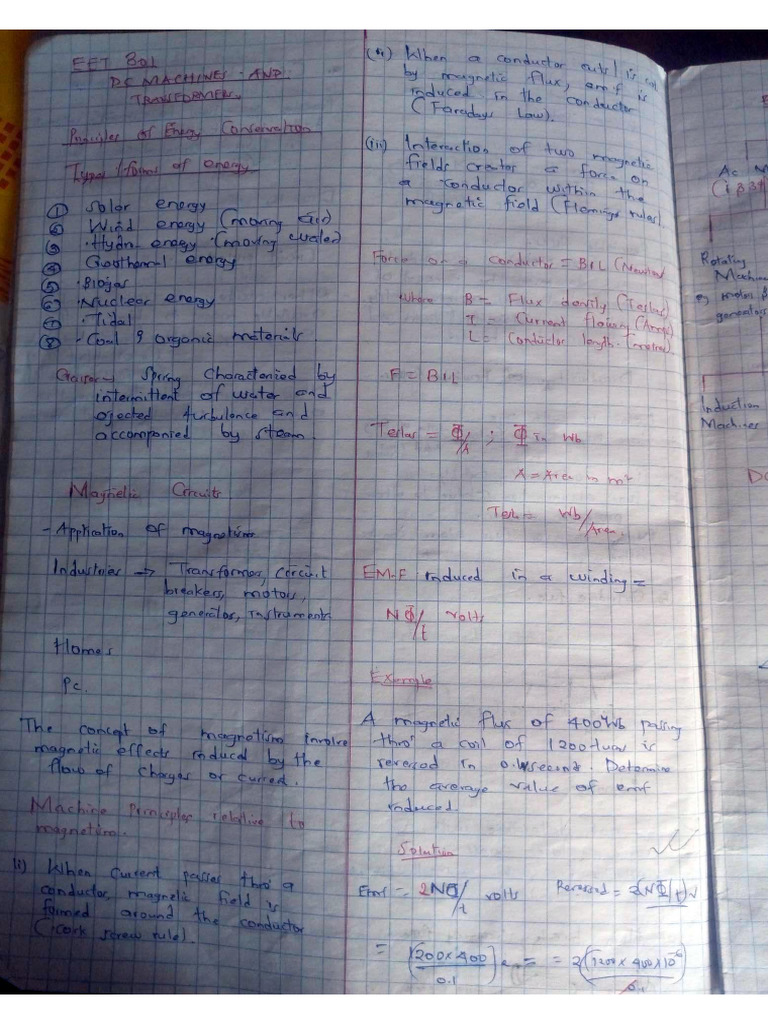 EET 801
DC MACHINES AND
TRANSFORMERS
Principles of Energy Conservation
Types/forms of energy
① Solar energy
② Wind energy (moving air)
③ Hydro energy (moving water)
④ Geothermal energy
⑤ Biogas
⑥ Nuclear energy
⑦ Tidal
⑧ Coal & organic materials
Spring characterized by
intermittent of water and
ejected turbulence and
accompanied by steam.
Magnetic Circuits
- Application of magnetism
Industries → Transformer, circuit
breakers, motors,
generators, instruments
Homes
Pc.
The concept of magnetism involve
magnetic effects induced by the
flow of charges or current.
Machine Principles relative to
magnetism.
(i) When current passes thro' a
conductor, magnetic field is
formed around the conductor
(cork screw rule).
(ii) When a conductor cuts / is cut
by magnetic flux, emf is
induced in the conductor
(Faradays Law).
(iii) Interaction of two magnetic
fields creates a force on
a conductor within the
magnetic field (Flemings rules).
Force on a conductor = BIL (Newtons)
Where B = Flux density (Teslas)
I = Current flowing (Amps)
L = Conductor length (metres)
F = BIL
Teslas = Φ/A ; Φ in Wb
A = Area in m²
Tesla = Wb/Area.
E.M.F induced in a winding =
NΦ/t volts
Example
A magnetic flux of 400 Wb passing
thro' a coil of 1200 turns is
reversed in 0.1 seconds. Determine
the average value of emf
induced.
Solution
Emf = 2NΦ/t volts Reversed = 2(NΦ/t) v
= (1200 x 400 / 0.1) 2 = = 2(1200 x 400 x 10⁻⁶)
0.1
AC M
Rotating
Machine
motors &
generators
Induction
Machines